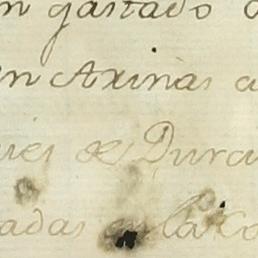 n gastado
en Axinas a
ues de Dura
adas en la Co